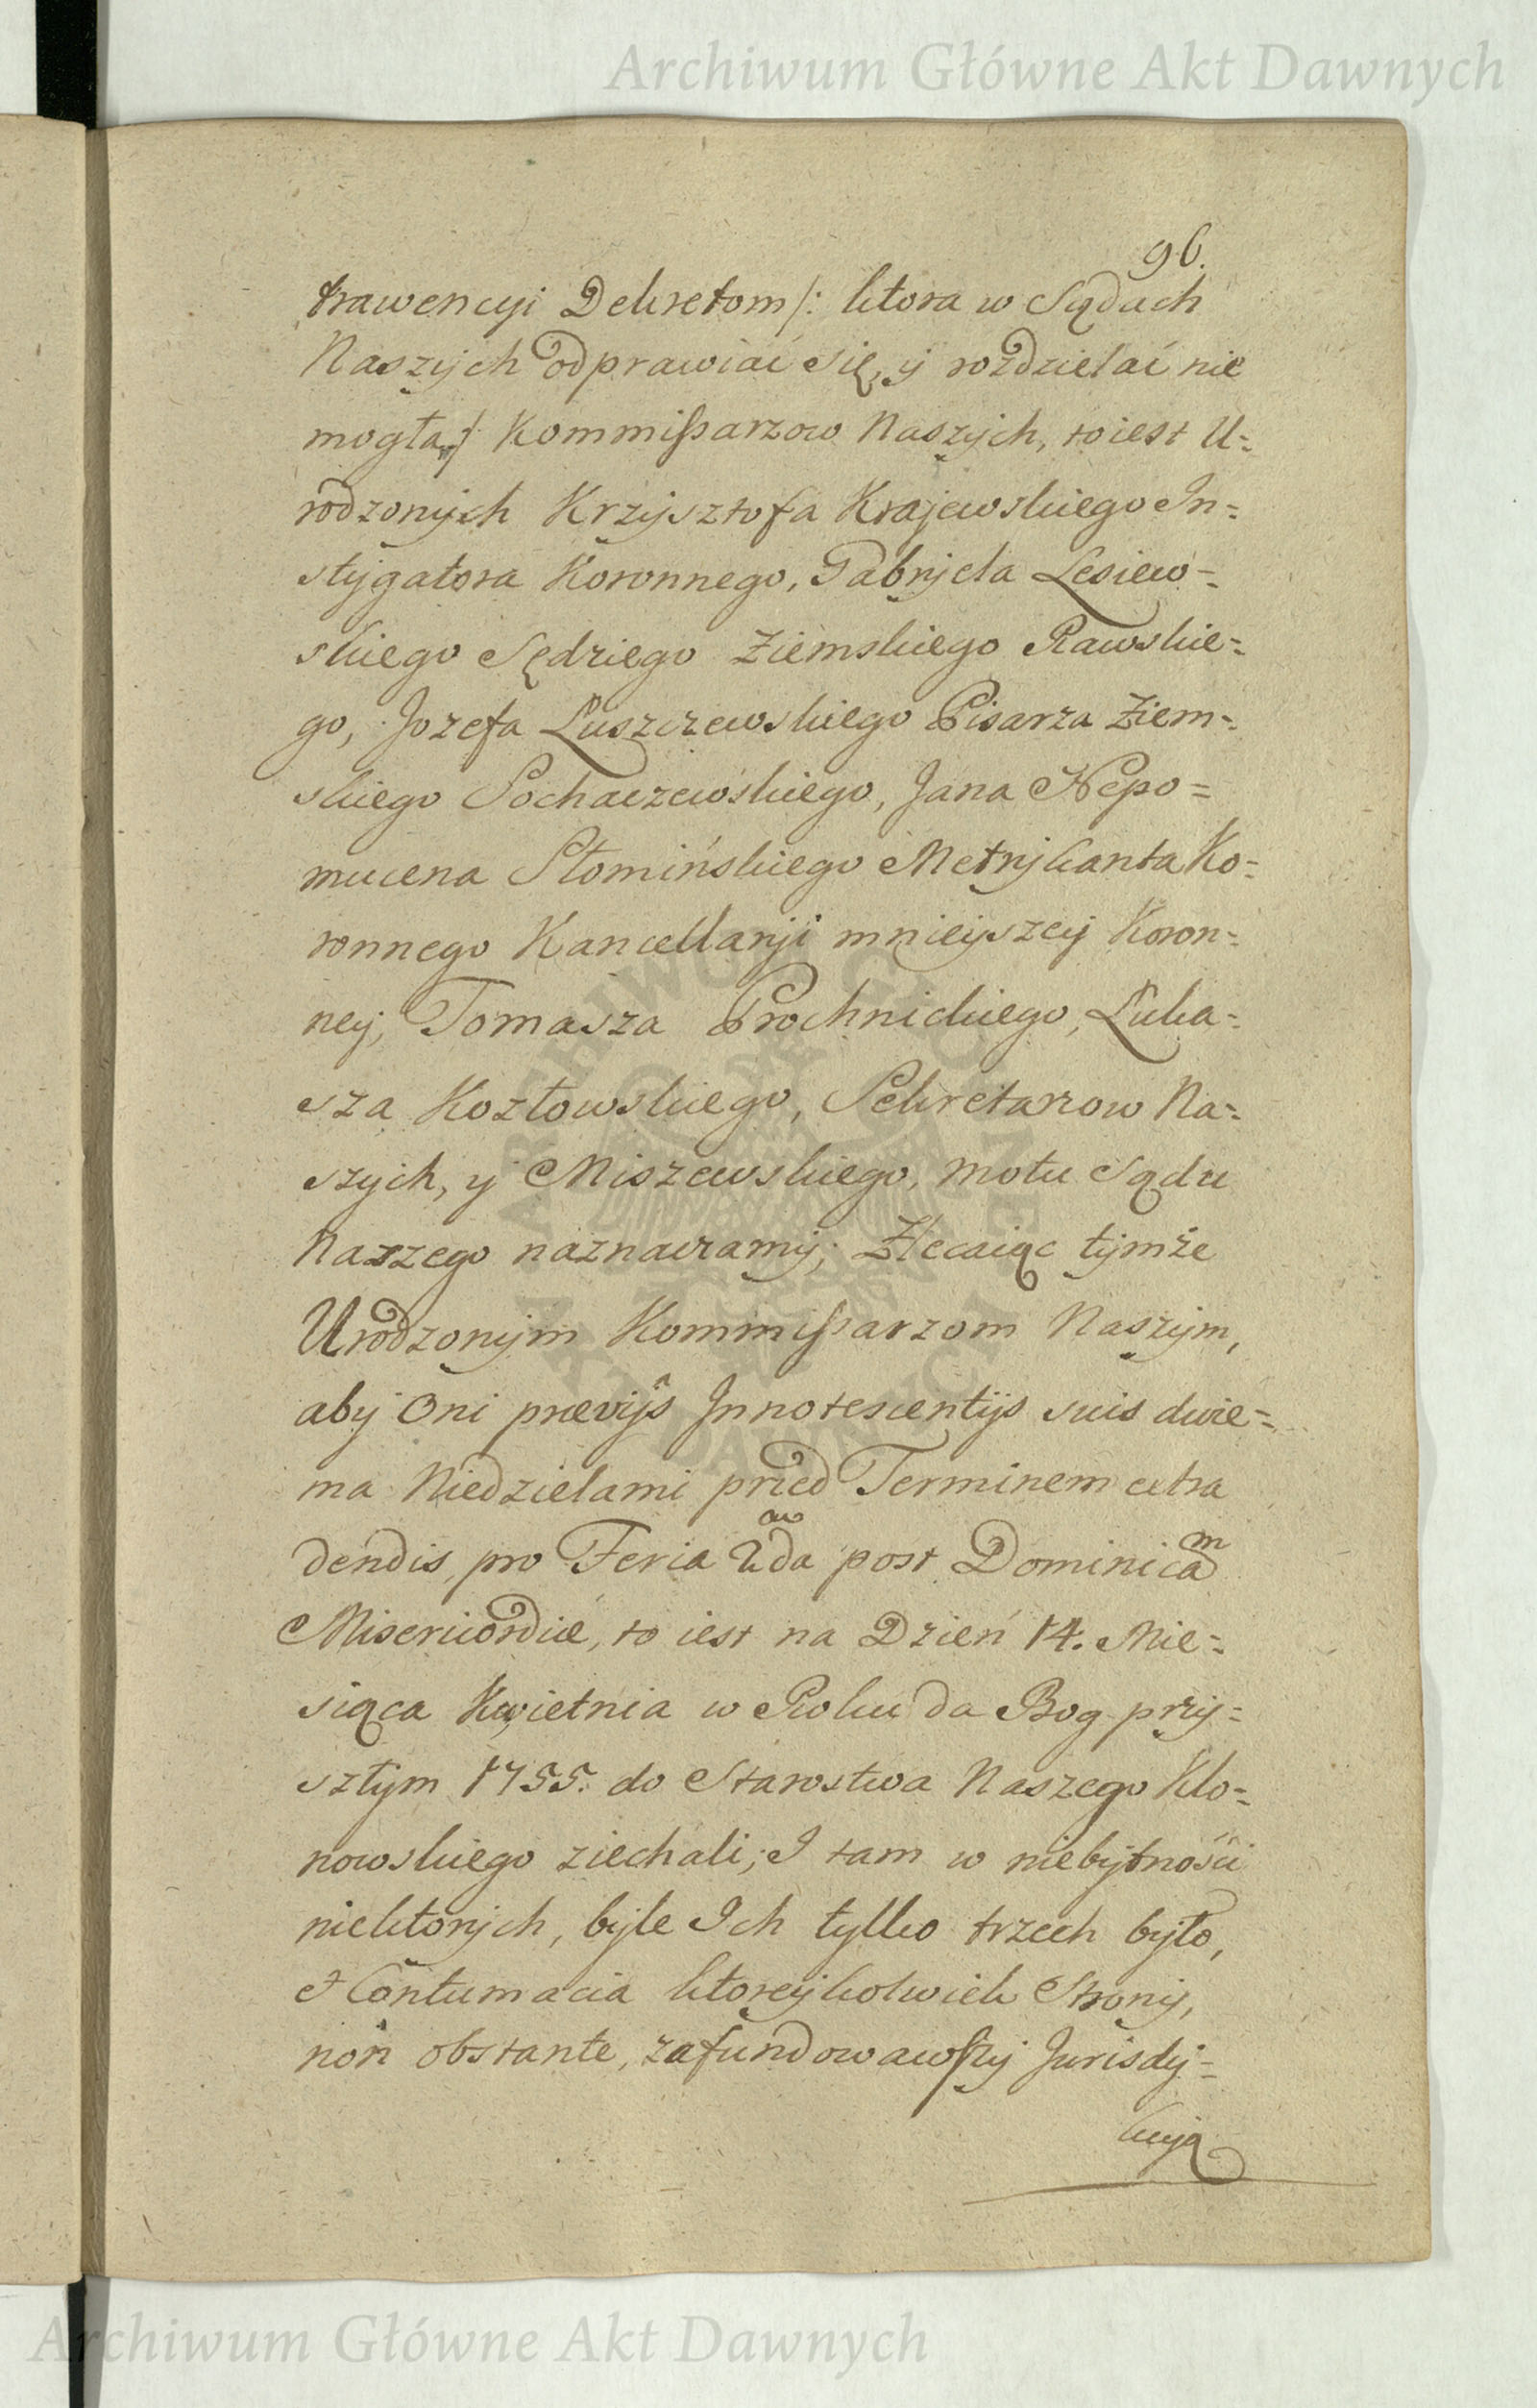 Archiwum Główne Akt Dawnych
96.
trawencyi Dekretom /: ktora w Sądach
Naszych odprawiać się, y rozdzielać nie
mogła :/ Kommißarzow Naszych, to iest U=
rodzonych Krzysztofa Krajewskiego In=
stygatora Koronnego, Gabryela Lesiew=
skiego Sędziego Ziemskiego Rawskie=
go, Jozefa Luszczewskiego Pisarza Ziem=
skiego Sochaczewskiego, Jana Nepo=
mucena Słomińskiego Metrykanta Ko=
ronnego Kancellaryi mnieyszey Koron=
ney, Tomasza Prochnickiego, Luka=
sza Kozłowskiego, Sekretarzow Na=
szych, y Miszewskiego, motu Sądu
Naszego naznaczamy; Zlecaiąc tymże
Urodzonym Kommißarzom Naszym,
aby Oni prævijs Innotescentijs suis dwie=
ma Niedzielami przed Terminem extra
dendis, pro Feria 2da post Dominicam
Misericordiæ, to iest na Dzień 14. Mie=
siąca Kwietnia w Roku da Bog przy=
szłym 1755. do Starostwa Naszego Klo=
nowskiego ziechali; I tam w niebytności
niektorych, byle Ich tylko trzech było,
et Contumacia ktoreykolwiek Strony,
non obstante, zafundowawszy Jurisdy=
kcyą
ARCHIWUM GŁÓWNE
AKT DAWNYCH
Archiwum Główne Akt Dawnych